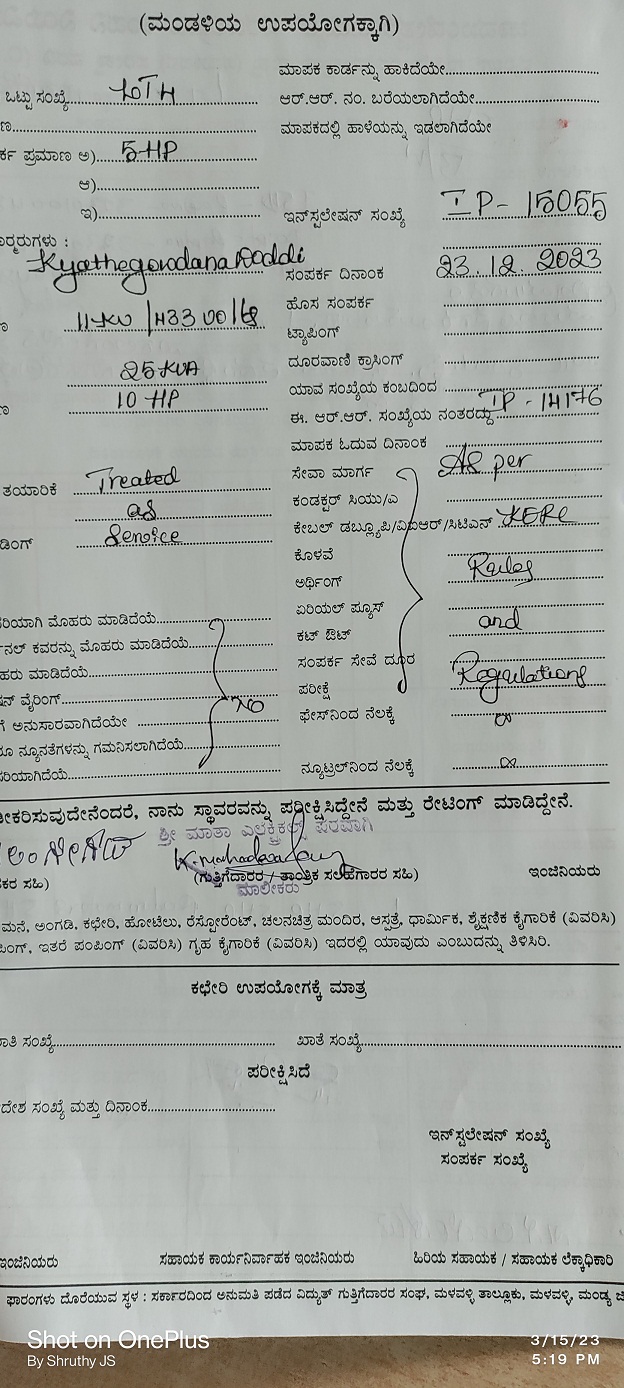 (ಮಂಡಳಿಯ ಉಪಯೋಗಕ್ಕಾಗಿ)
ಮಾಪಕ ಕಾರ್ಡನ್ನು ಹಾಕಿದೆಯೇ
ಒಟ್ಟು ಸಂಖ್ಯೆ
ಆರ್.ಆರ್. ನಂ. ಬರೆಯಲಾಗಿದೆಯೇ
ಮಾಪಕದಲ್ಲಿ ಹಾಳೆಯನ್ನು ಇಡಲಾಗಿದೆಯೇ
ಪ್ರಮಾಣ ಅ) 5 HP
ಆ)
ಇ)
ಇನ್‌ಸ್ಟಲೇಷನ್ ಸಂಖ್ಯೆ IP - 15055
Kyathegowdana Doddi
ಸಂಪರ್ಕ ದಿನಾಂಕ 23.12.2023
ಹೊಸ ಸಂಪರ್ಕ
11 KV
ಟ್ಯಾಪಿಂಗ್
ದೂರವಾಣಿ ಕ್ರಾಸಿಂಗ್
25 KVA
ಯಾವ ಸಂಖ್ಯೆಯ ಕಂಬದಿಂದ
10 HP
ಈ. ಆರ್.ಆರ್. ಸಂಖ್ಯೆಯ ನಂತರದ್ದು IP - 14176
ಮಾಪಕ ಓದುವ ದಿನಾಂಕ
ಸೇವಾ ಮಾರ್ಗ As per
ತಯಾರಿಕೆ Treated
ಕಂಡಕ್ಟರ್ ಸಿಯು/ಎ
as
ಕೇಬಲ್ ಡಬ್ಲ್ಯೂಪಿ/ವಿಐಆರ್/ಸಿಟಿಎಸ್ KERC
Service
ಕೊಳವೆ
ಅರ್ಥಿಂಗ್ Rules
ಏರಿಯಲ್ ಫ್ಯೂಸ್
ಮೊಹರು ಮಾಡಿದೆಯೆ
ಕಟ್ ಔಟ್ and
ಕವರನ್ನು ಮೊಹರು ಮಾಡಿದೆಯೆ
ಸಂಪರ್ಕ ಸೇವೆ ದೂರ
ಮಾಡಿದೆಯೆ
ಪರೀಕ್ಷೆ Regulations
ವೈರಿಂಗ್
ಫೇಸ್‌ನಿಂದ ನೆಲಕ್ಕೆ
ಅನುಸಾರವಾಗಿದೆಯೇ
ನ್ಯೂನತೆಗಳನ್ನು ಗಮನಿಸಲಾಗಿದೆಯೆ
ನ್ಯೂಟ್ರಲ್‌ನಿಂದ ನೆಲಕ್ಕೆ
ನಾನು ಸ್ಥಾವರವನ್ನು ಪರೀಕ್ಷಿಸಿದ್ದೇನೆ ಮತ್ತು ರೇಟಿಂಗ್ ಮಾಡಿದ್ದೇನೆ.
ಶ್ರೀ ಮಾತಾ ಎಲೆಕ್ಟ್ರಿಕಲ್ಸ್ ಪರವಾಗಿ
ಸಹಿ) (ಗುತ್ತಿಗೆದಾರರ / ತಾಂತ್ರಿಕ ಸಲಹೆಗಾರರ ಸಹಿ) ಇಂಜಿನಿಯರು
ಮಾಲೀಕರು
ಮನೆ, ಅಂಗಡಿ, ಕಛೇರಿ, ಹೋಟೆಲು, ರೆಸ್ಟೋರೆಂಟ್, ಚಲನಚಿತ್ರ ಮಂದಿರ, ಆಸ್ಪತ್ರೆ, ಧಾರ್ಮಿಕ, ಶೈಕ್ಷಣಿಕ ಕೈಗಾರಿಕೆ (ವಿವರಿಸಿ)
ಇತರೆ ಪಂಪಿಂಗ್ (ವಿವರಿಸಿ) ಗೃಹ ಕೈಗಾರಿಕೆ (ವಿವರಿಸಿ) ಇದರಲ್ಲಿ ಯಾವುದು ಎಂಬುದನ್ನು ತಿಳಿಸಿರಿ.
ಕಛೇರಿ ಉಪಯೋಗಕ್ಕೆ ಮಾತ್ರ
ಸಂಖ್ಯೆ ಖಾತೆ ಸಂಖ್ಯೆ
ಪರೀಕ್ಷಿಸಿದೆ
ಸಂಖ್ಯೆ ಮತ್ತು ದಿನಾಂಕ
ಇನ್‌ಸ್ಟಲೇಷನ್ ಸಂಖ್ಯೆ
ಸಂಪರ್ಕ ಸಂಖ್ಯೆ
ಇಂಜಿನಿಯರು ಸಹಾಯಕ ಕಾರ್ಯನಿರ್ವಾಹಕ ಇಂಜಿನಿಯರು ಹಿರಿಯ ಸಹಾಯಕ / ಸಹಾಯಕ ಲೆಕ್ಕಾಧಿಕಾರಿ
ಫಾರಂಗಳು ದೊರೆಯುವ ಸ್ಥಳ : ಸರ್ಕಾರದಿಂದ ಅನುಮತಿ ಪಡೆದ ವಿದ್ಯುತ್ ಗುತ್ತಿಗೆದಾರರ ಸಂಘ, ಮಳವಳ್ಳಿ ತಾಲ್ಲೂಕು, ಮಳವಳ್ಳಿ, ಮಂಡ್ಯ
Shot on OnePlus
By Shruthy JS
3/15/23
5:19 PM